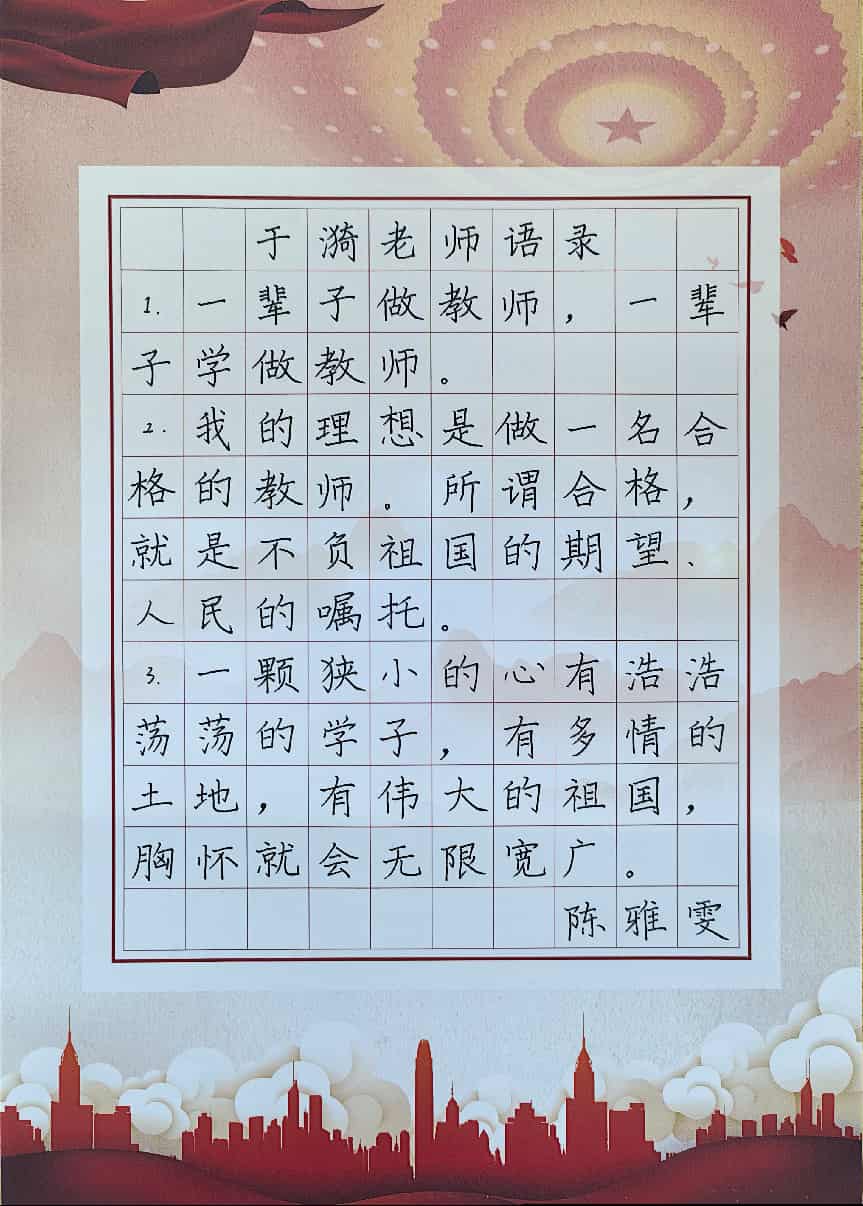 于漪老师语录
1. 一辈子做教师，一辈
子学做教师。
2. 我的理想是做一名合
格的教师。所谓合格，
就是不负祖国的期望、
人民的嘱托。
3. 一颗狭小的心有浩浩
荡荡的学子，有多情的
土地，有伟大的祖国，
胸怀就会无限宽广。
陈雅雯